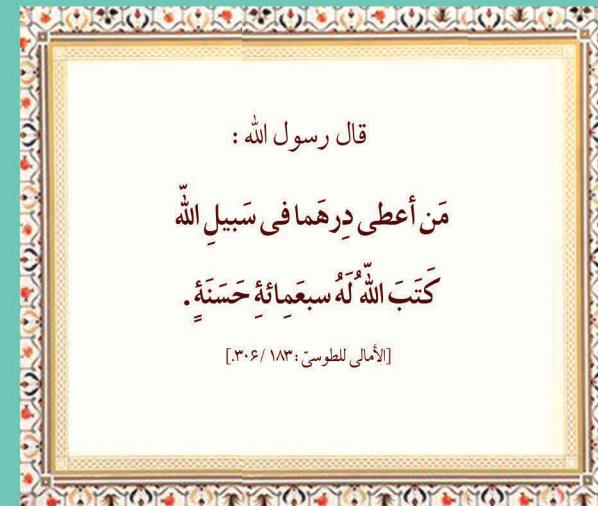 قال رسول الله :
مَن أعطى دِرهَما فى سَبيلِ اللّه
كَتَبَ اللّهُ لَهُ سبعَمِائةِ حَسَنَةٍ .
[الأمالى للطوسىّ : ۱۸۳ /۳۰۶.]